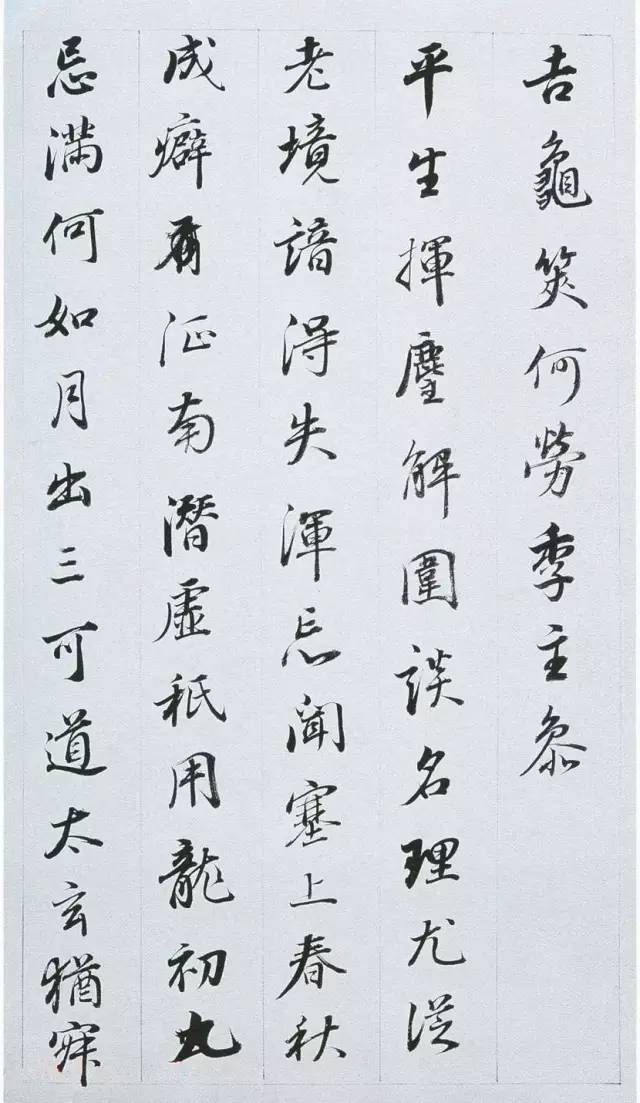 吉龜筴何勞季主叅
平生揮麈解圍談名理尤從
老境諳得失渾忘聞塞上春秋
成癖有征南潛虛秖用龍初九
忌滿何如月出三可道太玄猶寂